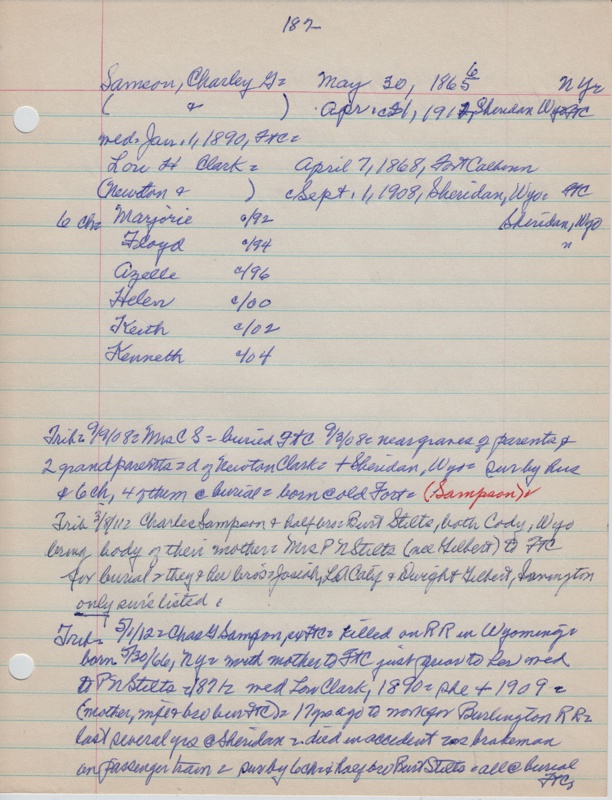 182
Samson, Charley G= May 30, 1865 6 NY=
( & ) Apr. c21, 1912, Sheridan Wyo= FtC
med= Jan. 1, 1890, FtC=
Lou H Clark= April 7, 1868, Fort Calhoun
(Newton & ) cSept. 1, 1908, Sheridan, Wyo= FtC
6 ch= Marjorie c/92 Sheridan, Wyo
Floyd c/94 "
Azelle c/96
Helen c/00
Keith c/02
Kenneth c/04
Trib= 9/9/08= Mrs C S= buried FtC 9/3/08= near graves of parents &
2 grandparents= d of Newton Clark= + Sheridan, Wyo= sur by hus
& 6 ch, 4 of them @ burial= born @ old Fort= (Sampson)
Trib 3/8/11= Charles Sampson & half bro= Burt Stilts, both Cody, Wyo
bring body of their mother= Mrs P N Stilts (nee Gilbert) to FtC
for burial= they & her bros= Josiah, & Dwight Gilbert,
only surs listed.
Trib= 5/1/12= Chas G Sampson, FtC= killed on RR in Wyoming=
born 5/30/66, NY= with mother to FtC just prior to her med
to P N Stilts= 1872= med Lou Clark, 1890= she + 1909=
(mother, wife & bro bur FtC)= 17 yrs ago to work for Burlington RR=
last several yrs @ Sheridan= died in accident as brakeman
on passenger train= sur by 6 ch & half bro Burt Stilts= all @ burial
FtC,